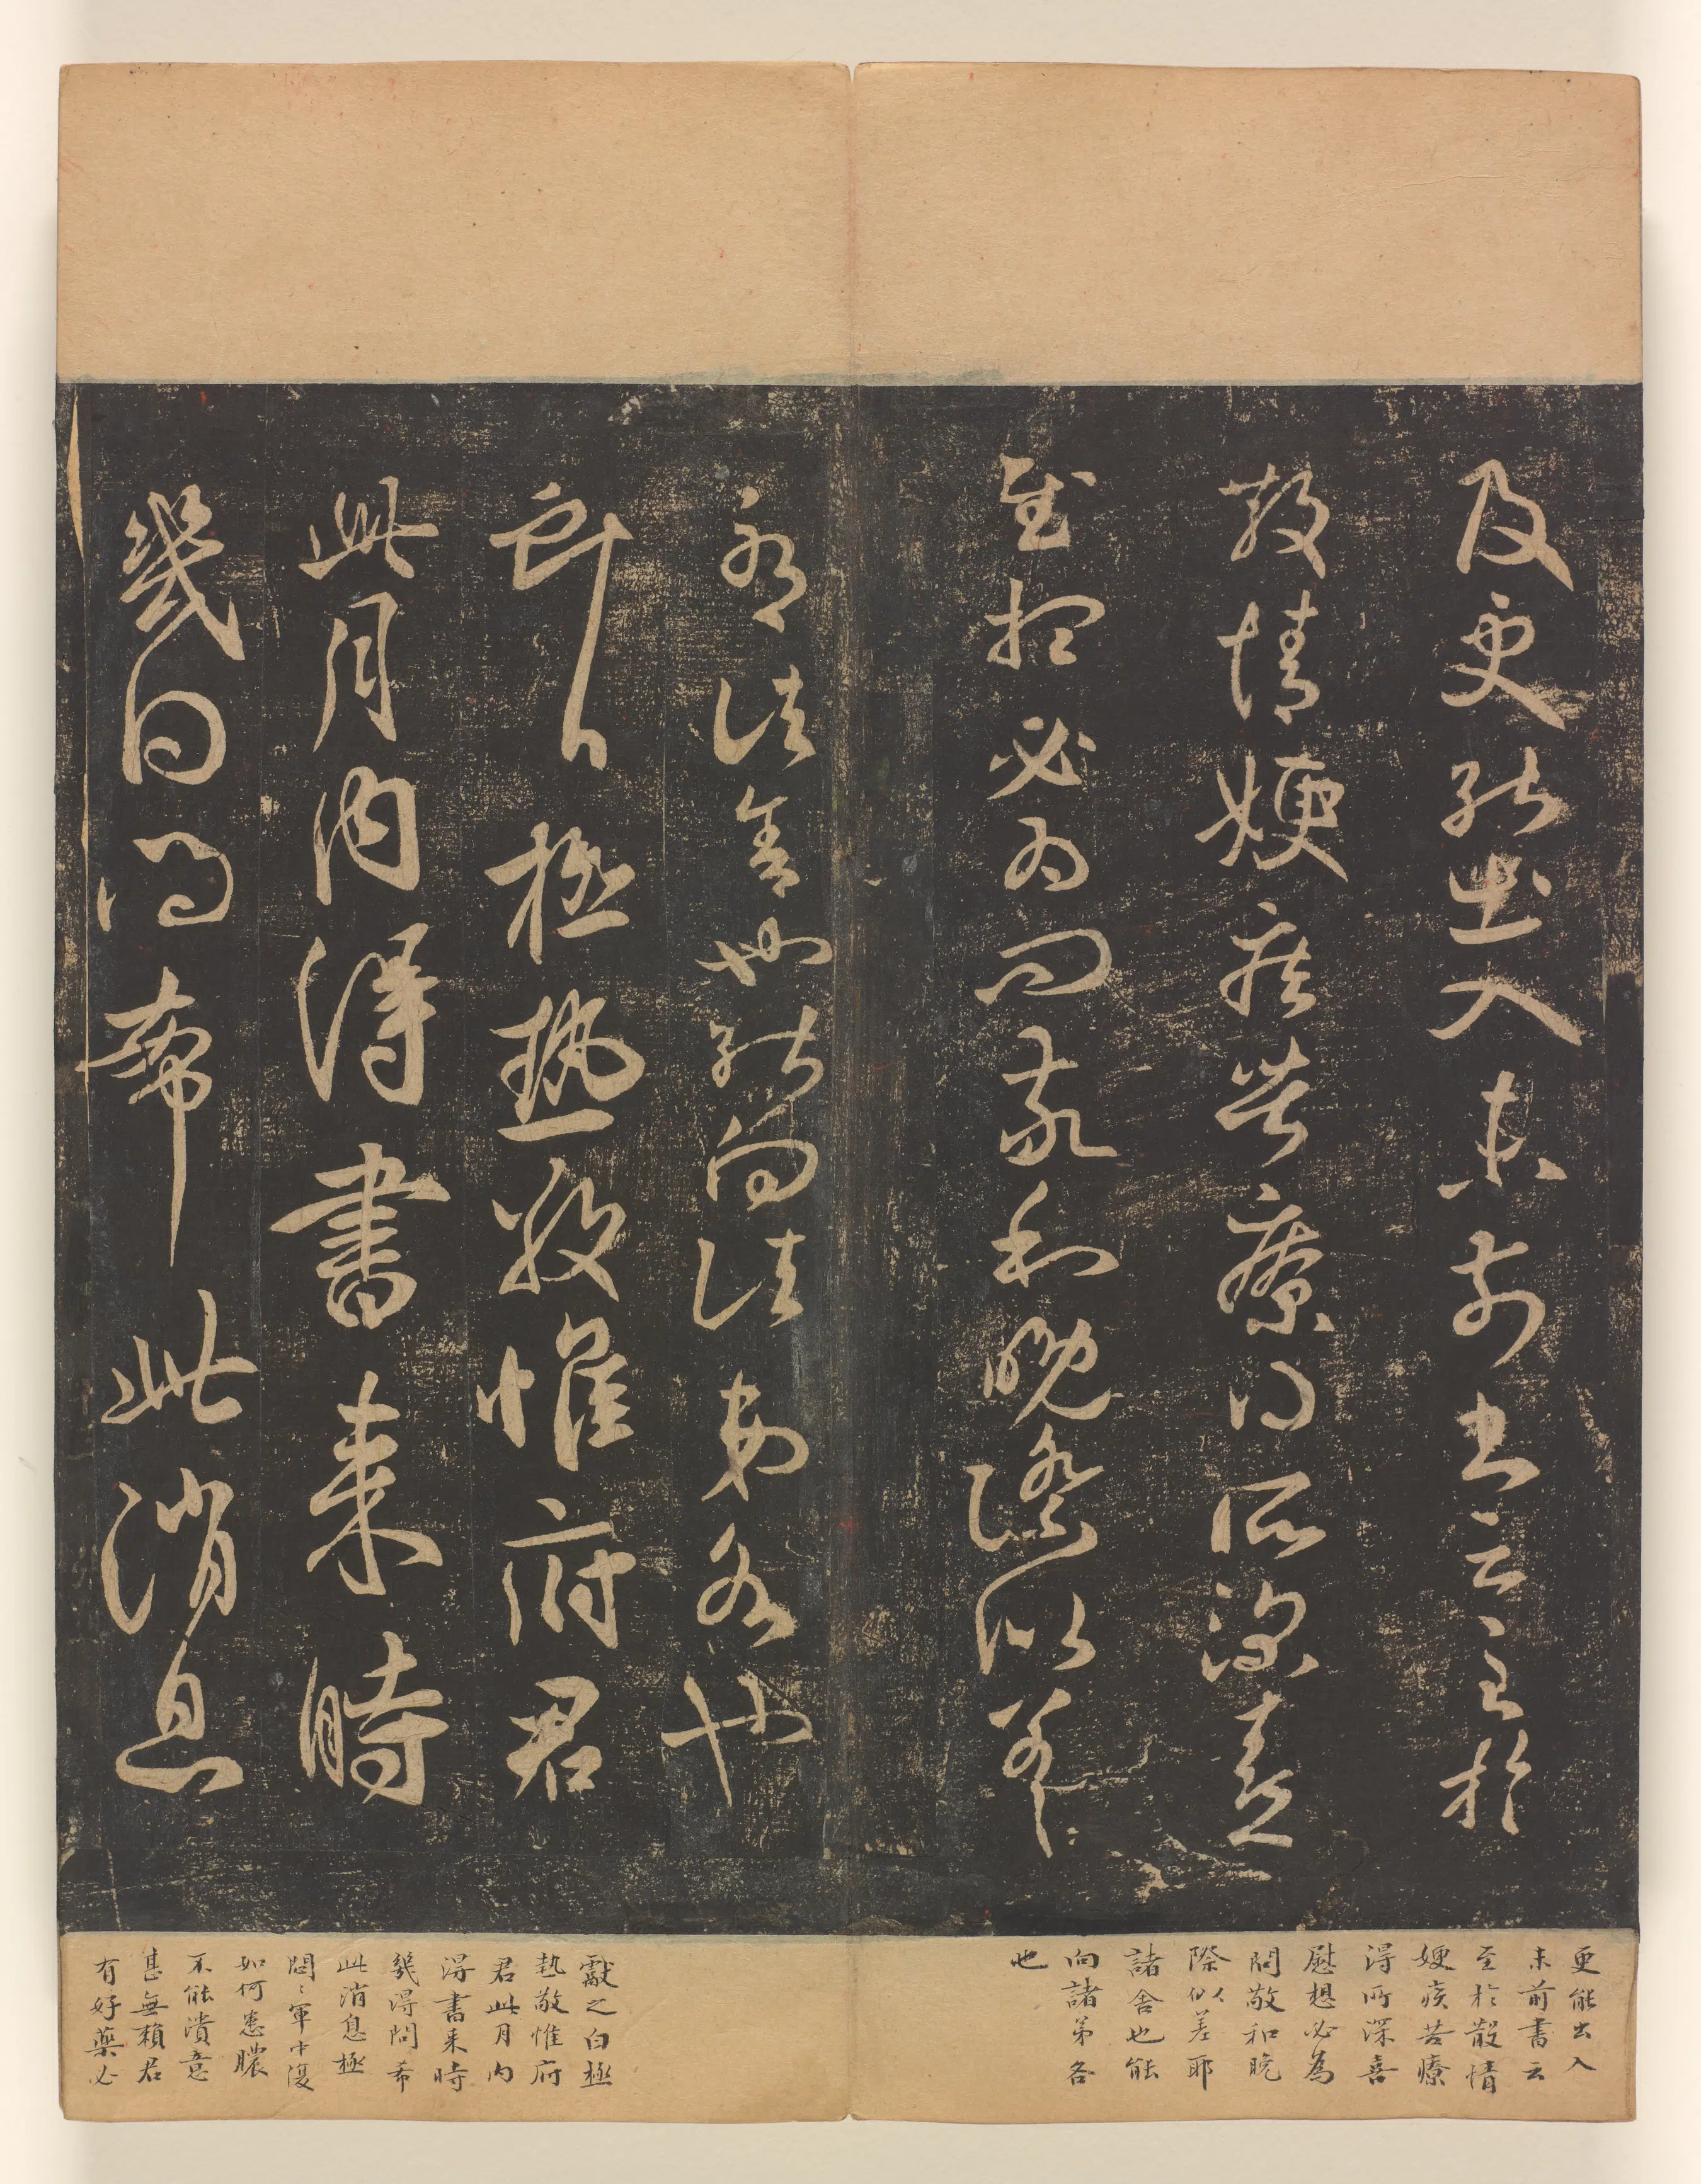 及更能出入未前書云至於
散情㛐疾苦療得所深喜
慰想必為問敬和晚際似差
耶諸舍也能向諸弟各也
獻之白極熱敬惟府君
此月內得書来時
幾問得希此消息
更能出入
未前書云
至於散情
㛐疾苦療
得所深喜
慰想必為
問敬和晚
際似差耶
諸舍也能
向諸弟各
也
獻之白極
熱敬惟府
君此月內
得書来時
幾得問希
此消息極
悶〻軍中復
如何患膿
不能潰意
甚無賴君
有好藥必